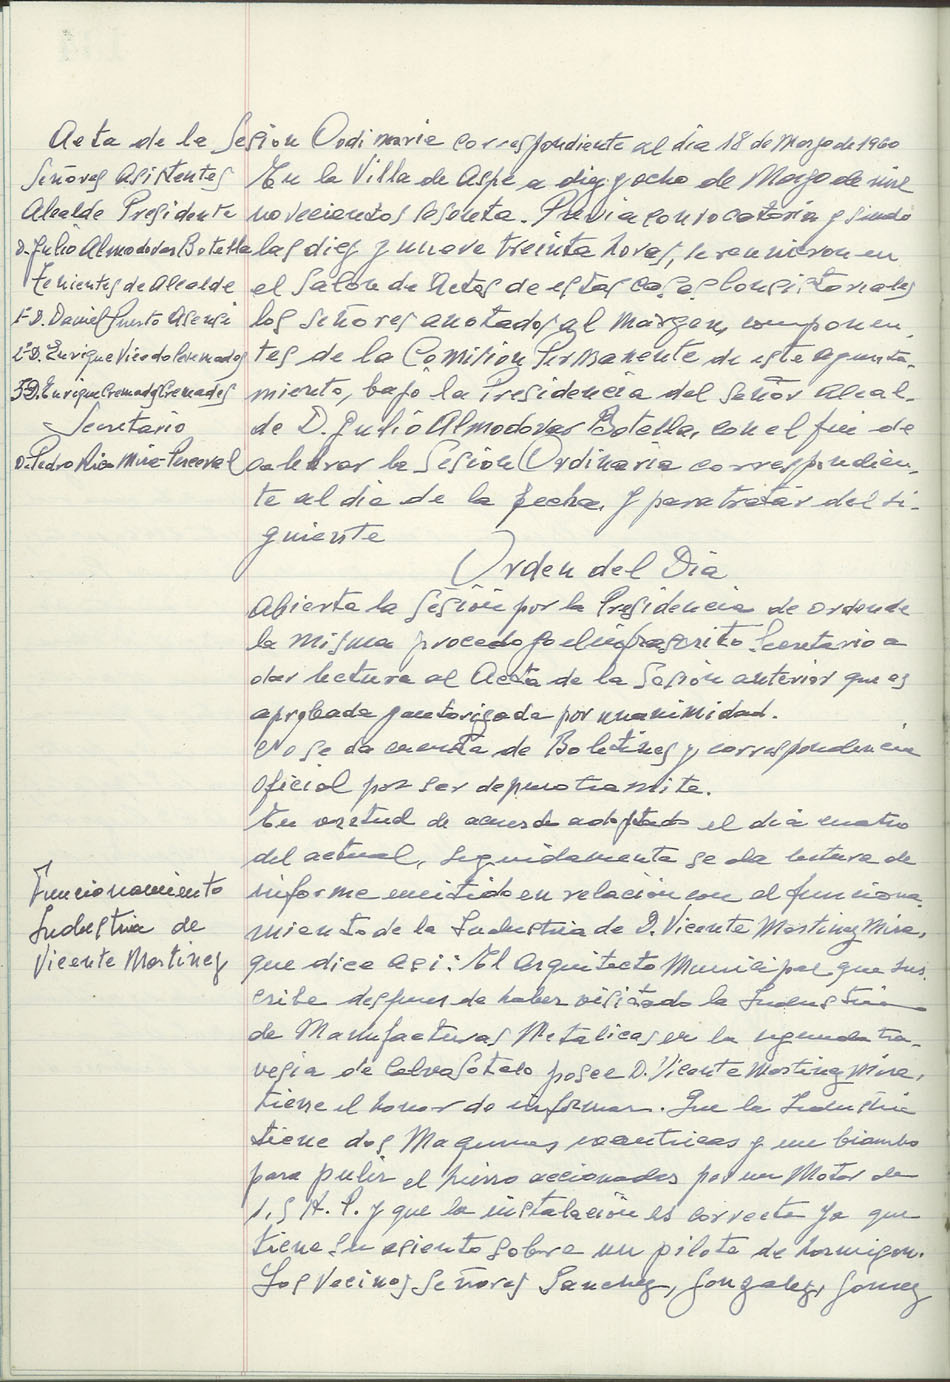 Acta de la Sesion Ordinaria correspondiente al dia 18 de Marzo de 1960
Señores Asistentes
Alcalde Presidente
D. Julio Almodovar Botella
Tenientes de Alcalde
1º D. Daniel Puerto Asensi
2º D. Enrique Vicedo Cremades
3º D. Enrique Cremades Cremades
Secretario
D. Pedro Mira-Perceval
En la Villa de Aspe a diez y ocho de Marzo de mil
novecientos sesenta. Previa convocatoria y siendo
las diez y nueve treinta horas, se reunieron en
el Salon de Actos de estas casas Consistoriales
los señores anotados al margen, componen-
tes de la Comision Permanente de este Ayunta-
miento, bajo la Presidencia del Señor Alcal-
de D. Julio Almodovar Botella, con el fin de
celebrar la Sesion Ordinaria correspondien-
te al dia de la fecha, y para tratar del si-
guiente
Orden del Dia
Abierta la Sesion por la Presidencia de orden de
la misma procedo yo el infrascrito Secretario a
dar lectura al Acta de la Sesion anterior que es
aprobada y autorizada por unanimidad.
No se da cuenta de Boletines y correspondencia
oficial por ser de puro tramite.
En virtud de acuerdo adoptado el dia cuatro
del actual, seguidamente se da lectura de
Funcionamiento
Industria de
Vicente Martinez
informe emitido en relacion con el funciona-
miento de la Industria de D. Vicente Martinez Mira,
que dice asi: El Arquitecto Municipal que sus-
cribe despues de haber visitado la Industria
de Manufacturas Metalicas en la segunda tra-
vesia de Calvo Sotelo posee D. Vicente Martinez Mira,
tiene el honor de informar. Que la Industria
tiene dos Maquinas excentricas y un biombo
para pulir el hierro accionados por un Motor de
1,5 H.P. y que la instalacion es correcta ya que
tiene su asiento sobre un pilote de hormigon.
Los Vecinos Señores Sanchez, Gonzalez, Gomez